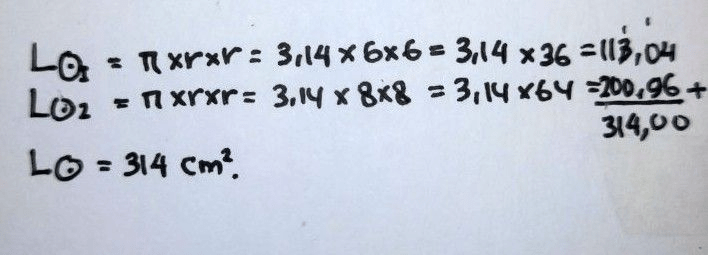 L⊙₁ = π×r×r = 3,14 × 6×6 = 3,14 × 36 = 113,04
L⊙₂ = π×r×r = 3,14 × 8×8 = 3,14 × 64 = 200,96 +
314,00
L⊙ = 314 cm².